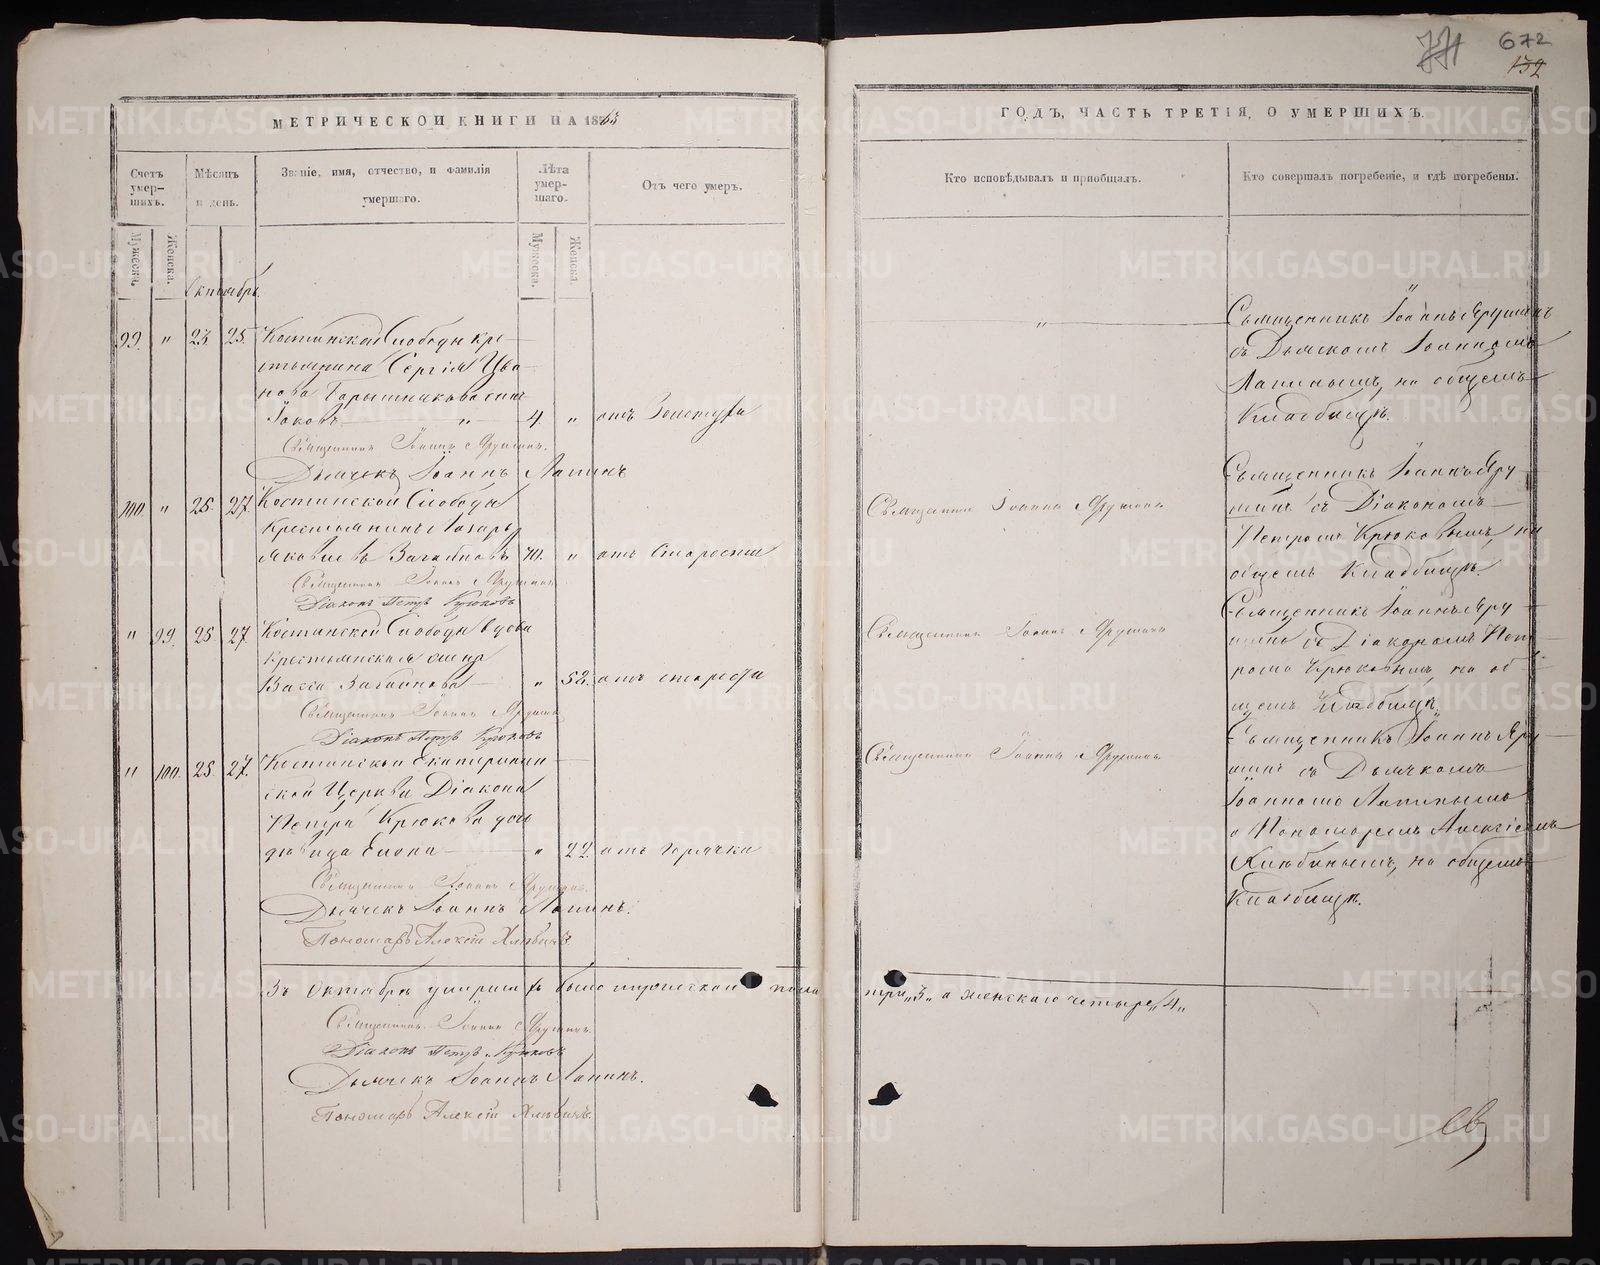 672
132
МЕТРИЧЕСКОЙ КНИГИ НА 1863
ГОДЪ, ЧАСТЬ ТРЕТІЯ, О УМЕРШИХЪ.
Счетъ умер-
шихъ.
Мужеска.
Женска.
Мѣсяцъ
и день.
Званіе, имя, отчество, и фамилія
умершаго.
Лѣта
умер-
шаго.
Мужеска.
Женска.
Отъ чего умеръ.
Кто исповѣдывалъ и пріобщалъ.
Кто совершалъ погребеніе, и гдѣ погребены.
Октябрь.
99. " 23. 25.
Костинской Слободы кре-
стьянина Сергія Ива-
нова Барышникова сынъ
Іаковъ " 4. " отъ Золотухи
Священникъ Іоаннъ Ярушинъ.
Дьячекъ Іоаннъ Лапинъ
"
Священникъ Іоаннъ Ярушинъ
съ Дьячкомъ Іоанномъ
Лапинымъ, на общемъ
Кладбищѣ.
100 " 25. 27.
Костинской Слободы
Крестьянинъ Лазарь
Яковлевъ 70. " отъ Старости
Священникъ Іоаннъ Ярушинъ.
Діаконъ Петръ Крюковъ
Священникъ Іоаннъ Ярушинъ
Священникъ Іоаннъ Яру-
шинъ съ Діакономъ
Петромъ Крюковымъ, на
общемъ Кладбищѣ.
" 99. 25. 27.
Костинской Слободы вдова
Крестьянская жена
Васса " 58. отъ старости
Священникъ Іоаннъ Ярушинъ
Діаконъ Петръ Крюковъ
Священникъ Іоаннъ Ярушинъ
Священникъ Іоаннъ Яру-
шинъ съ Діакономъ Пет-
ромъ Крюковымъ, на об-
щемъ Кладбищѣ.
" 100. 25. 27.
Костинской Екатеринин-
ской Церкви Діакона
Петра Крюкова дочь
дѣвица Елена " 22. отъ горячки
Священникъ Іоаннъ Ярушинъ.
Дьячекъ Іоаннъ Лапинъ.
Пономарь Алексѣй Хлѣбинъ.
Священникъ Іоаннъ Ярушинъ
Священникъ Іоаннъ Яру-
шинъ съ Дьячкомъ
Іоанномъ Лапинымъ
и Пономаремъ Алексѣемъ
Хлѣбинымъ, на общемъ
Кладбищѣ.
Въ Октябрѣ умершихъ было мужескаго пола
три "3" а женскаго четыре "4"
Священникъ Іоаннъ Ярушинъ.
Діаконъ Петръ Крюковъ
Дьячекъ Іоаннъ Лапинъ.
Пономарь Алексѣй Хлѣбинъ.
METRIKI.GASO-URAL.RU